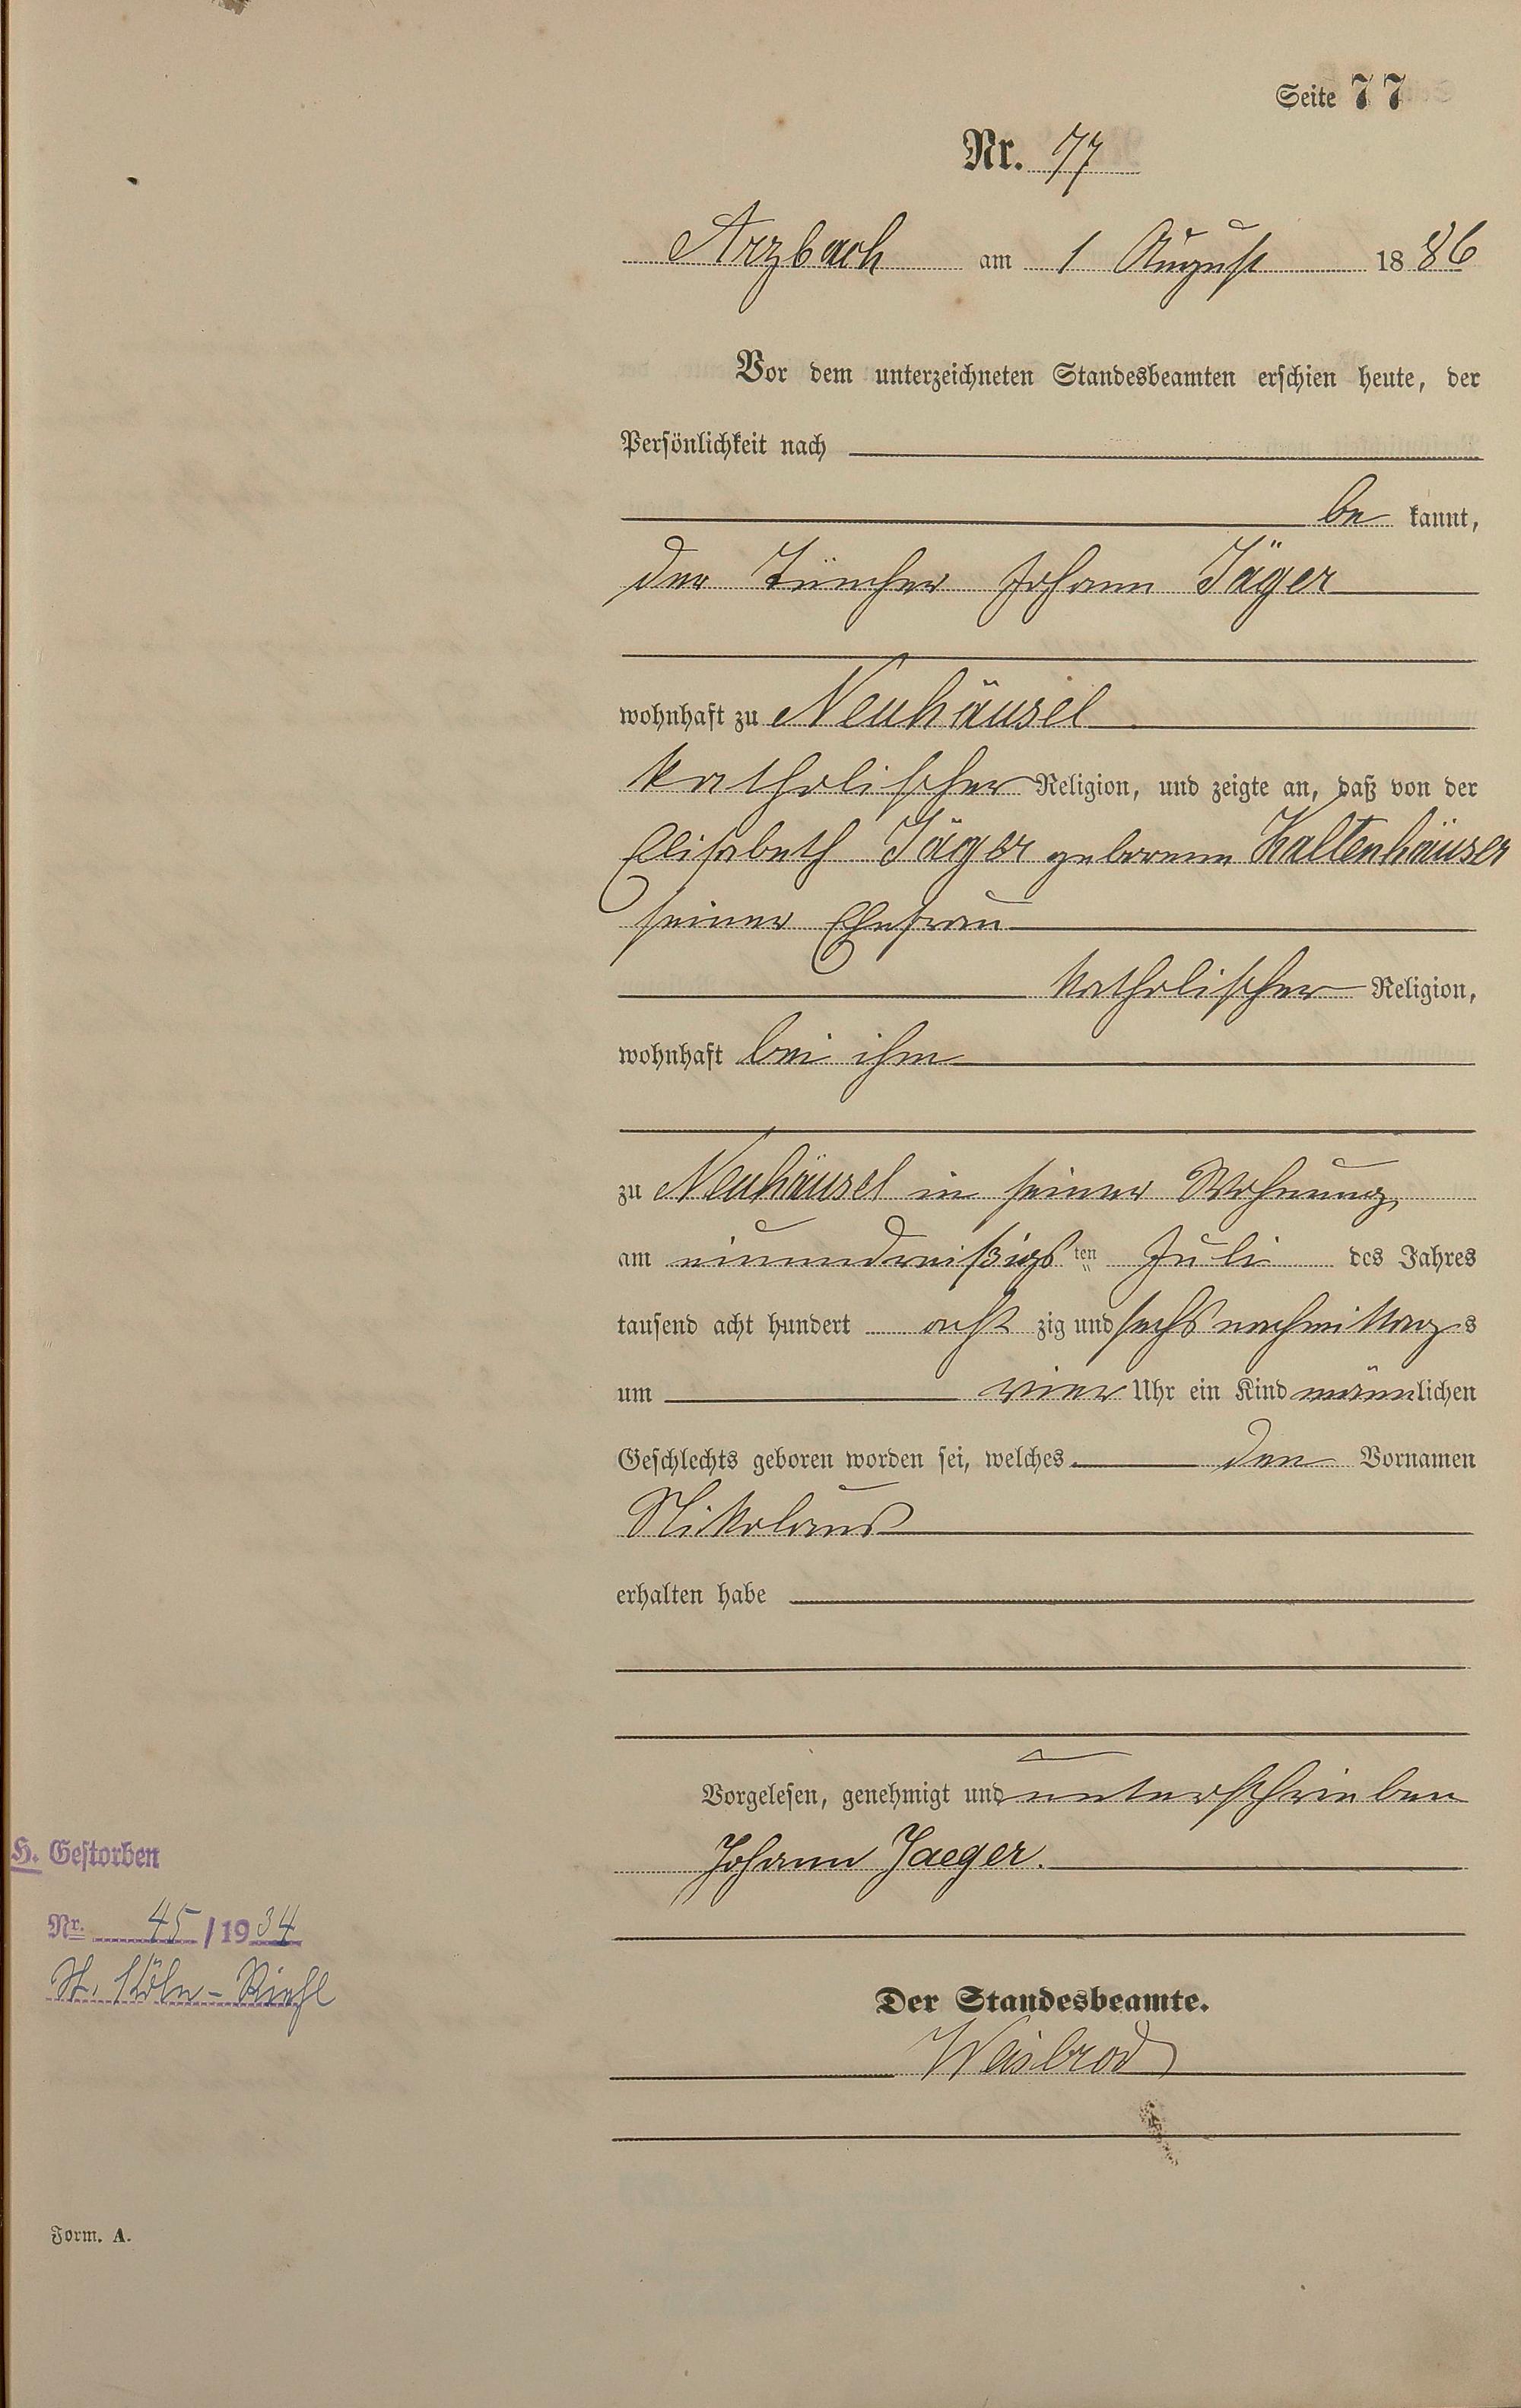 Seite 77
Nr. 77
Arzbach am 1 August 1886
Vor dem unterzeichneten Standesbeamten erschien heute, der
Persönlichkeit nach
be kannt,
der Tüncher Johann Jäger
wohnhaft zu Neuhäusel
katholischer Religion, und zeigte an, daß von der
Elisabeth Jäger geborenen Kaltenhäuser
seiner Ehefrau
katholischer Religion,
wohnhaft bei ihm
zu Neuhäusel in seiner Wohnung
am einunddreißigs ten Juli des Jahres
tausend acht hundert acht zig und sechs nachmittags
um vier Uhr ein Kind männlichen
Geschlechts geboren worden sei, welches den Vornamen
Nikolaus
erhalten habe
Vorgelesen, genehmigt und unterschrieben
Johann Jaeger.
H. Gestorben
Nr. 45/1934
St. Köln-Riehl
Der Standesbeamte.
Weisbrod
Form. A.